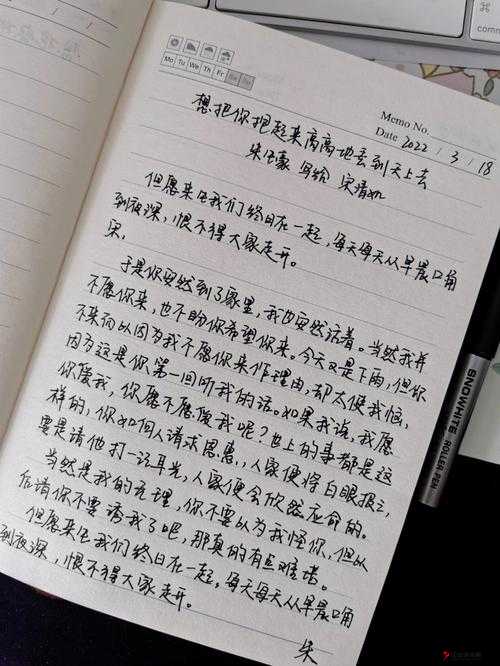 Mo Tu We Th Fr Sa Su
Memo No.
Date 2022 / 3 / 18
想把你抱起来高高地丢到天上去
朱生豪 写给 宋清如
但愿来生我们终日在一起，每天每天从早晨口角
到夜深，恨不得大家走开。
宋：
于是你安然到了家里，我也安然活着。当然我并
不愿你来，也不盼你希望你来。今天又是下雨，但你
不来而以因为我不愿你来作理由，却太使我恼，
因为这是你第一回听我的话。如果我说，我愿
你爱我，你愿不愿爱我呢？世上的事都是这
样的，你如向人请求恩惠，人家便将白眼报之，
要是请他打一记耳光，人家便会欣然应命的。
当然是我的无理，你不要以为我怪你，但以
后请你不要诱我了吧，那真的有点难堪。
但愿来生我们终日在一起，每天每天从早晨口角
到夜深，恨不得大家走开。
朱
SNOWWHITE
ROLLER PEN
comm